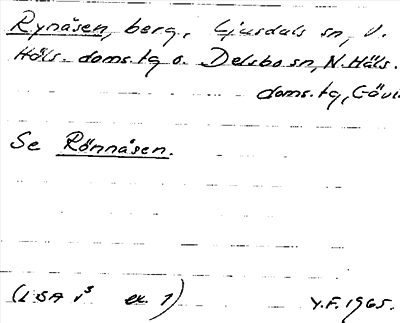 Rynåsen, berg, Ljusdals sn, V.
Häls. doms. tg o. Delsbo sn, N. Häls.
doms. tg, Gävl
Se Rönnåsen.
(LSA ex. 1) Y.F. 1965.